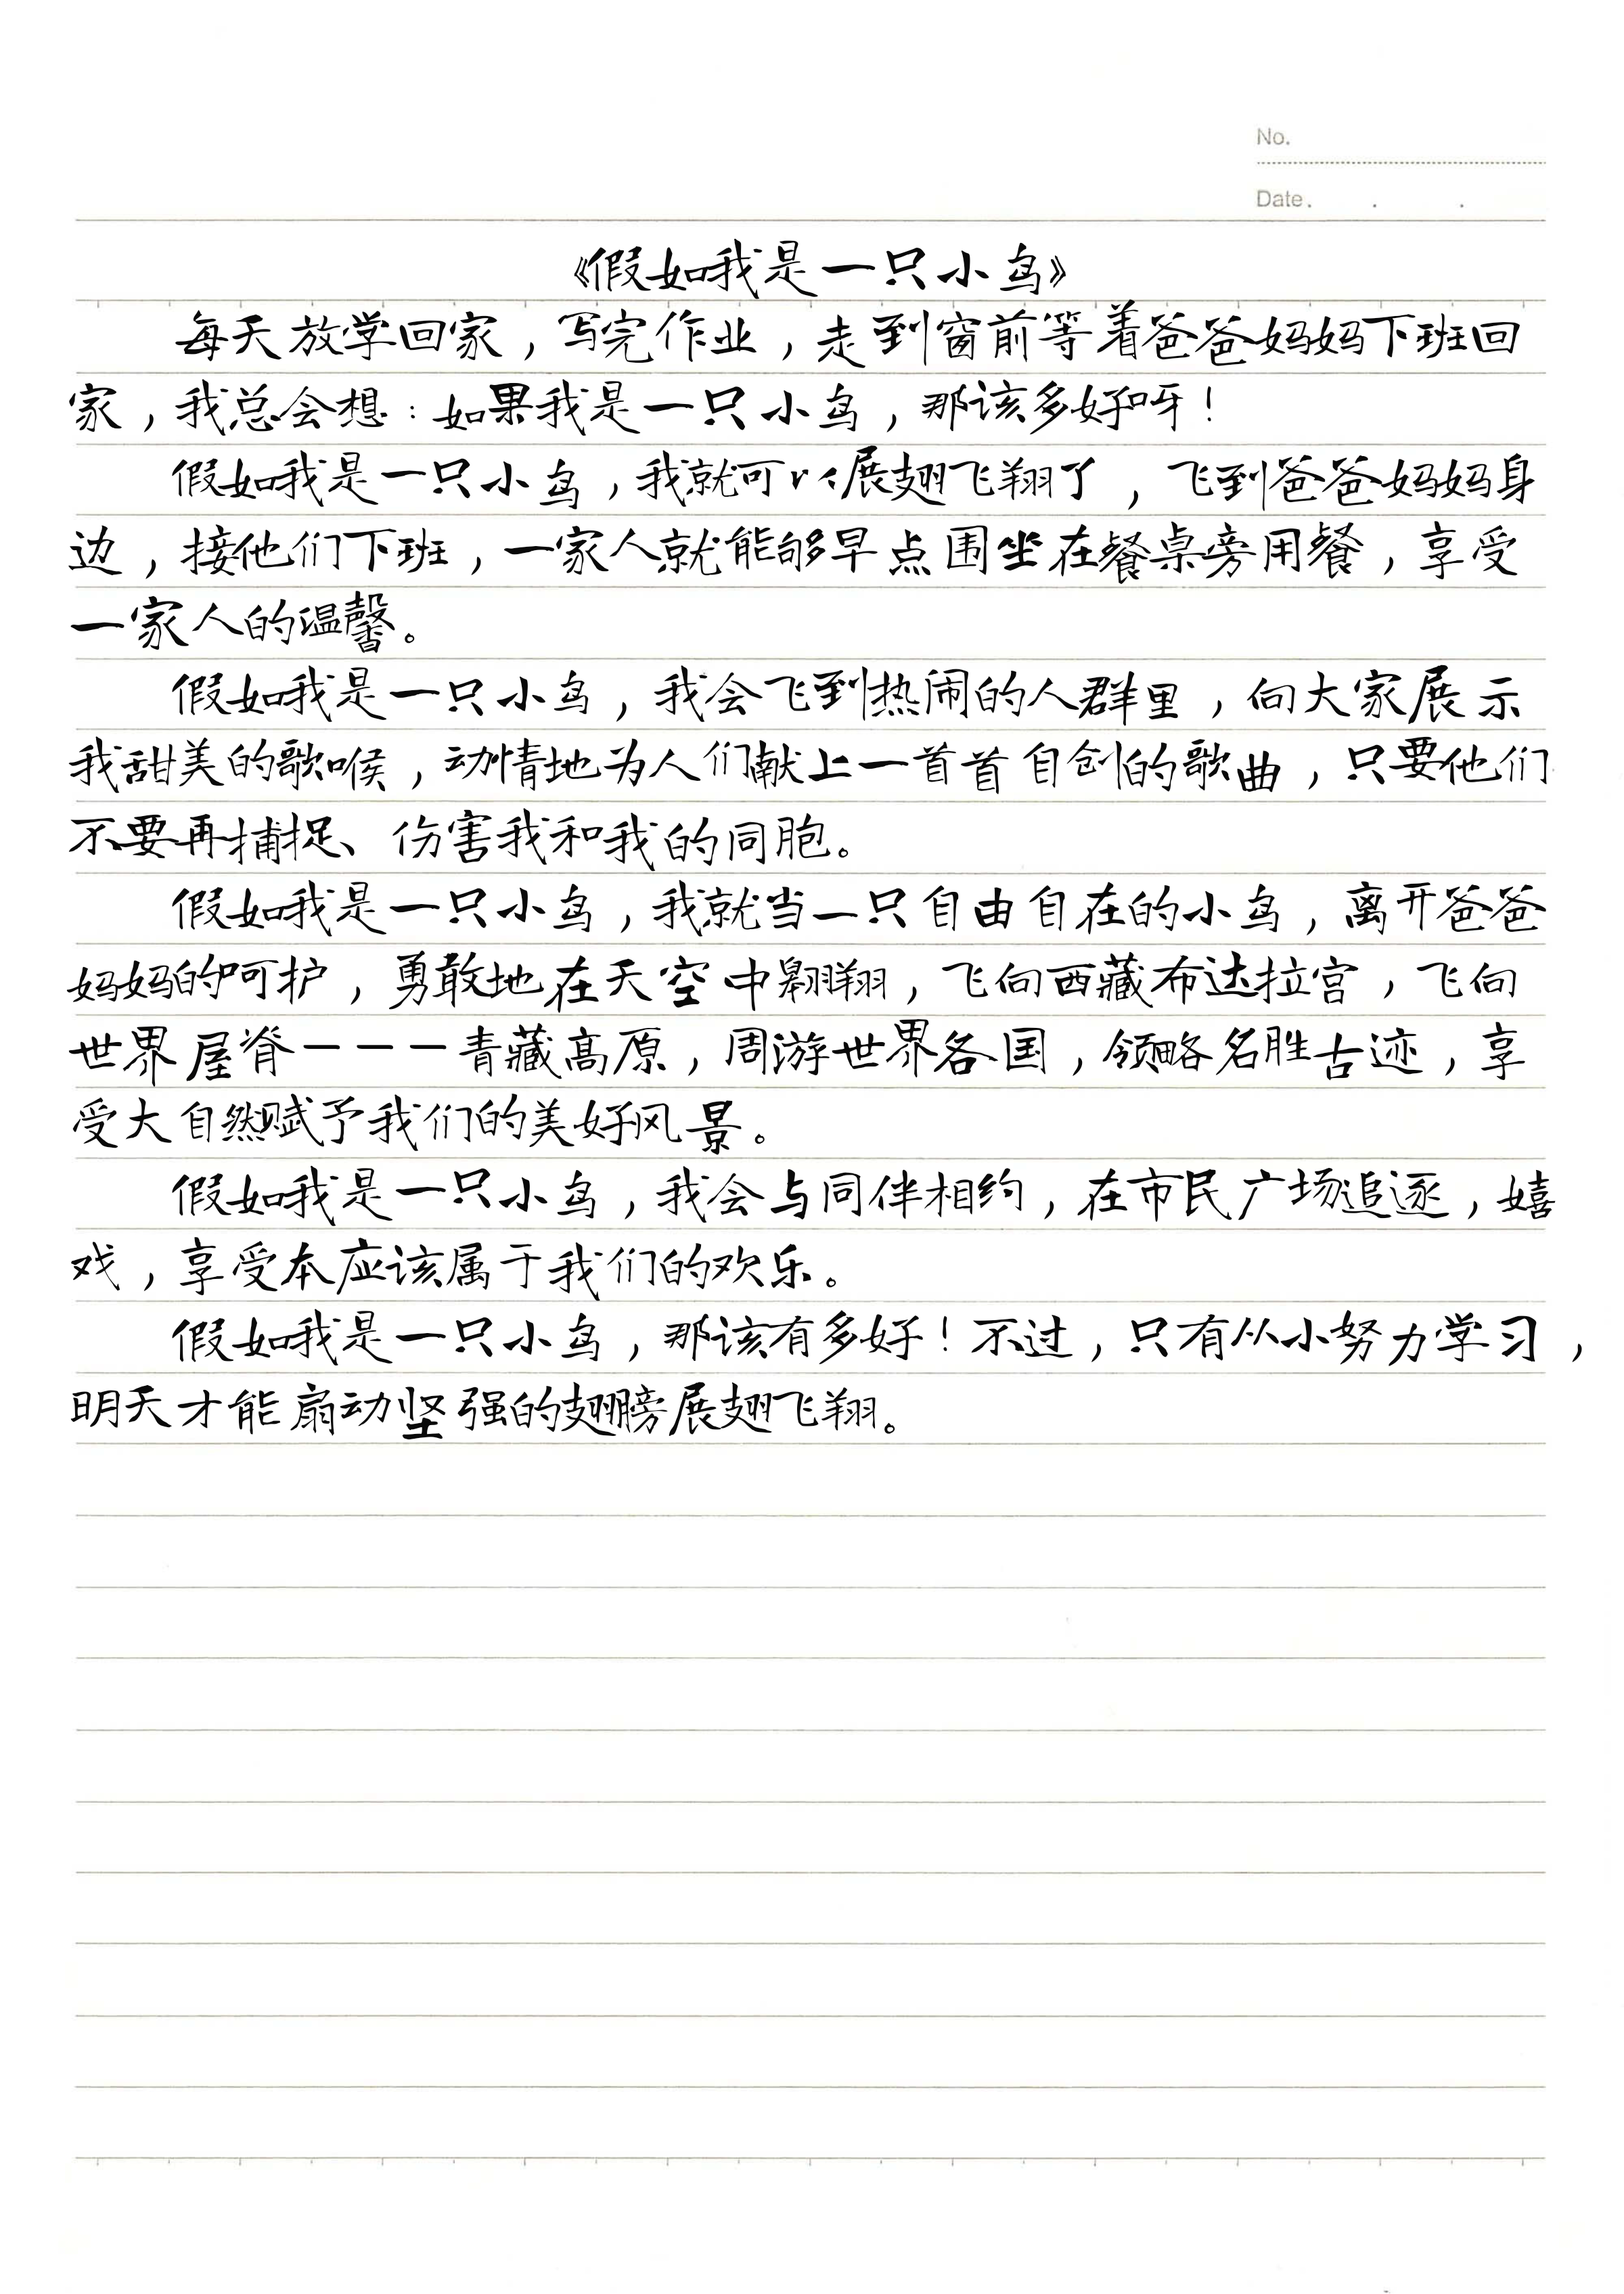 No.
Date.   .   .
《假如我是一只小鸟》
每天放学回家，写完作业，走到窗前等着爸爸妈妈下班回
家，我总会想：如果我是一只小鸟，那该多好呀！
假如我是一只小鸟，我就可以展翅飞翔了，飞到爸爸妈妈身
边，接他们下班，一家人就能够早点围坐在餐桌旁用餐，享受
一家人的温馨。
假如我是一只小鸟，我会飞到热闹的人群里，向大家展示
我甜美的歌喉，动情地为人们献上一首首自创的歌曲，只要他们
不要再捕捉、伤害我和我的同胞。
假如我是一只小鸟，我就当一只自由自在的小鸟，离开爸爸
妈妈的呵护，勇敢地在天空中翱翔，飞向西藏布达拉宫，飞向
世界屋脊———青藏高原，周游世界各国，领略名胜古迹，享
受大自然赋予我们的美好风景。
假如我是一只小鸟，我会与同伴相约，在市民广场追逐，嬉
戏，享受本应该属于我们的欢乐。
假如我是一只小鸟，那该有多好！不过，只有从小努力学习，
明天才能扇动坚强的翅膀展翅飞翔。